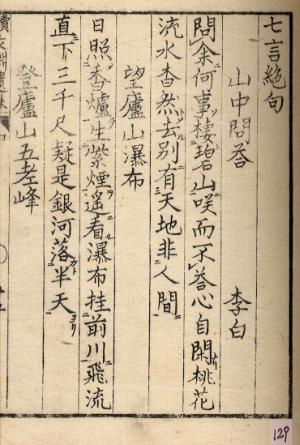 七言絶句
山中問荅 李白
問余何事棲碧山咲而不荅心自閑桃花
流水杳然去別有天地非人間
望廬山瀑布
日照香爐生紫煙遥看瀑布挂前川飛流
直下三千尺疑是銀河落半天
登廬山五老峰
129